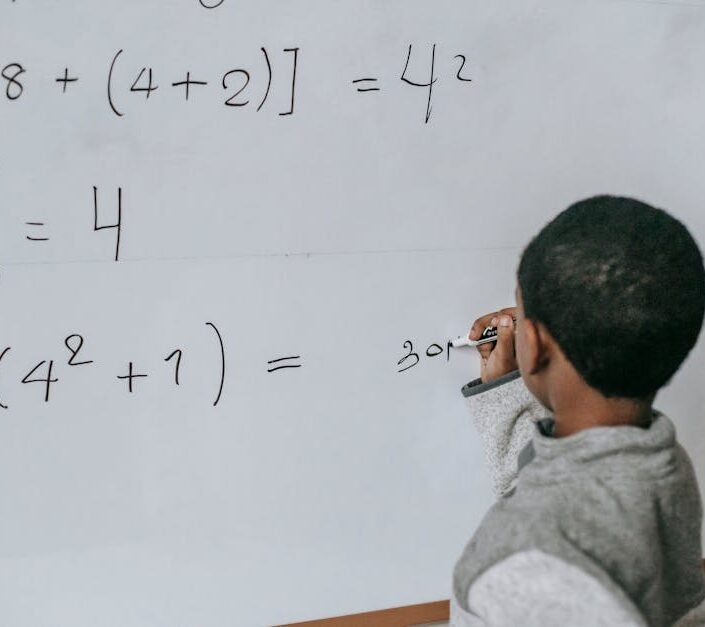 8 + (4+2)] = 4²
= 4
(4² + 1) = 30